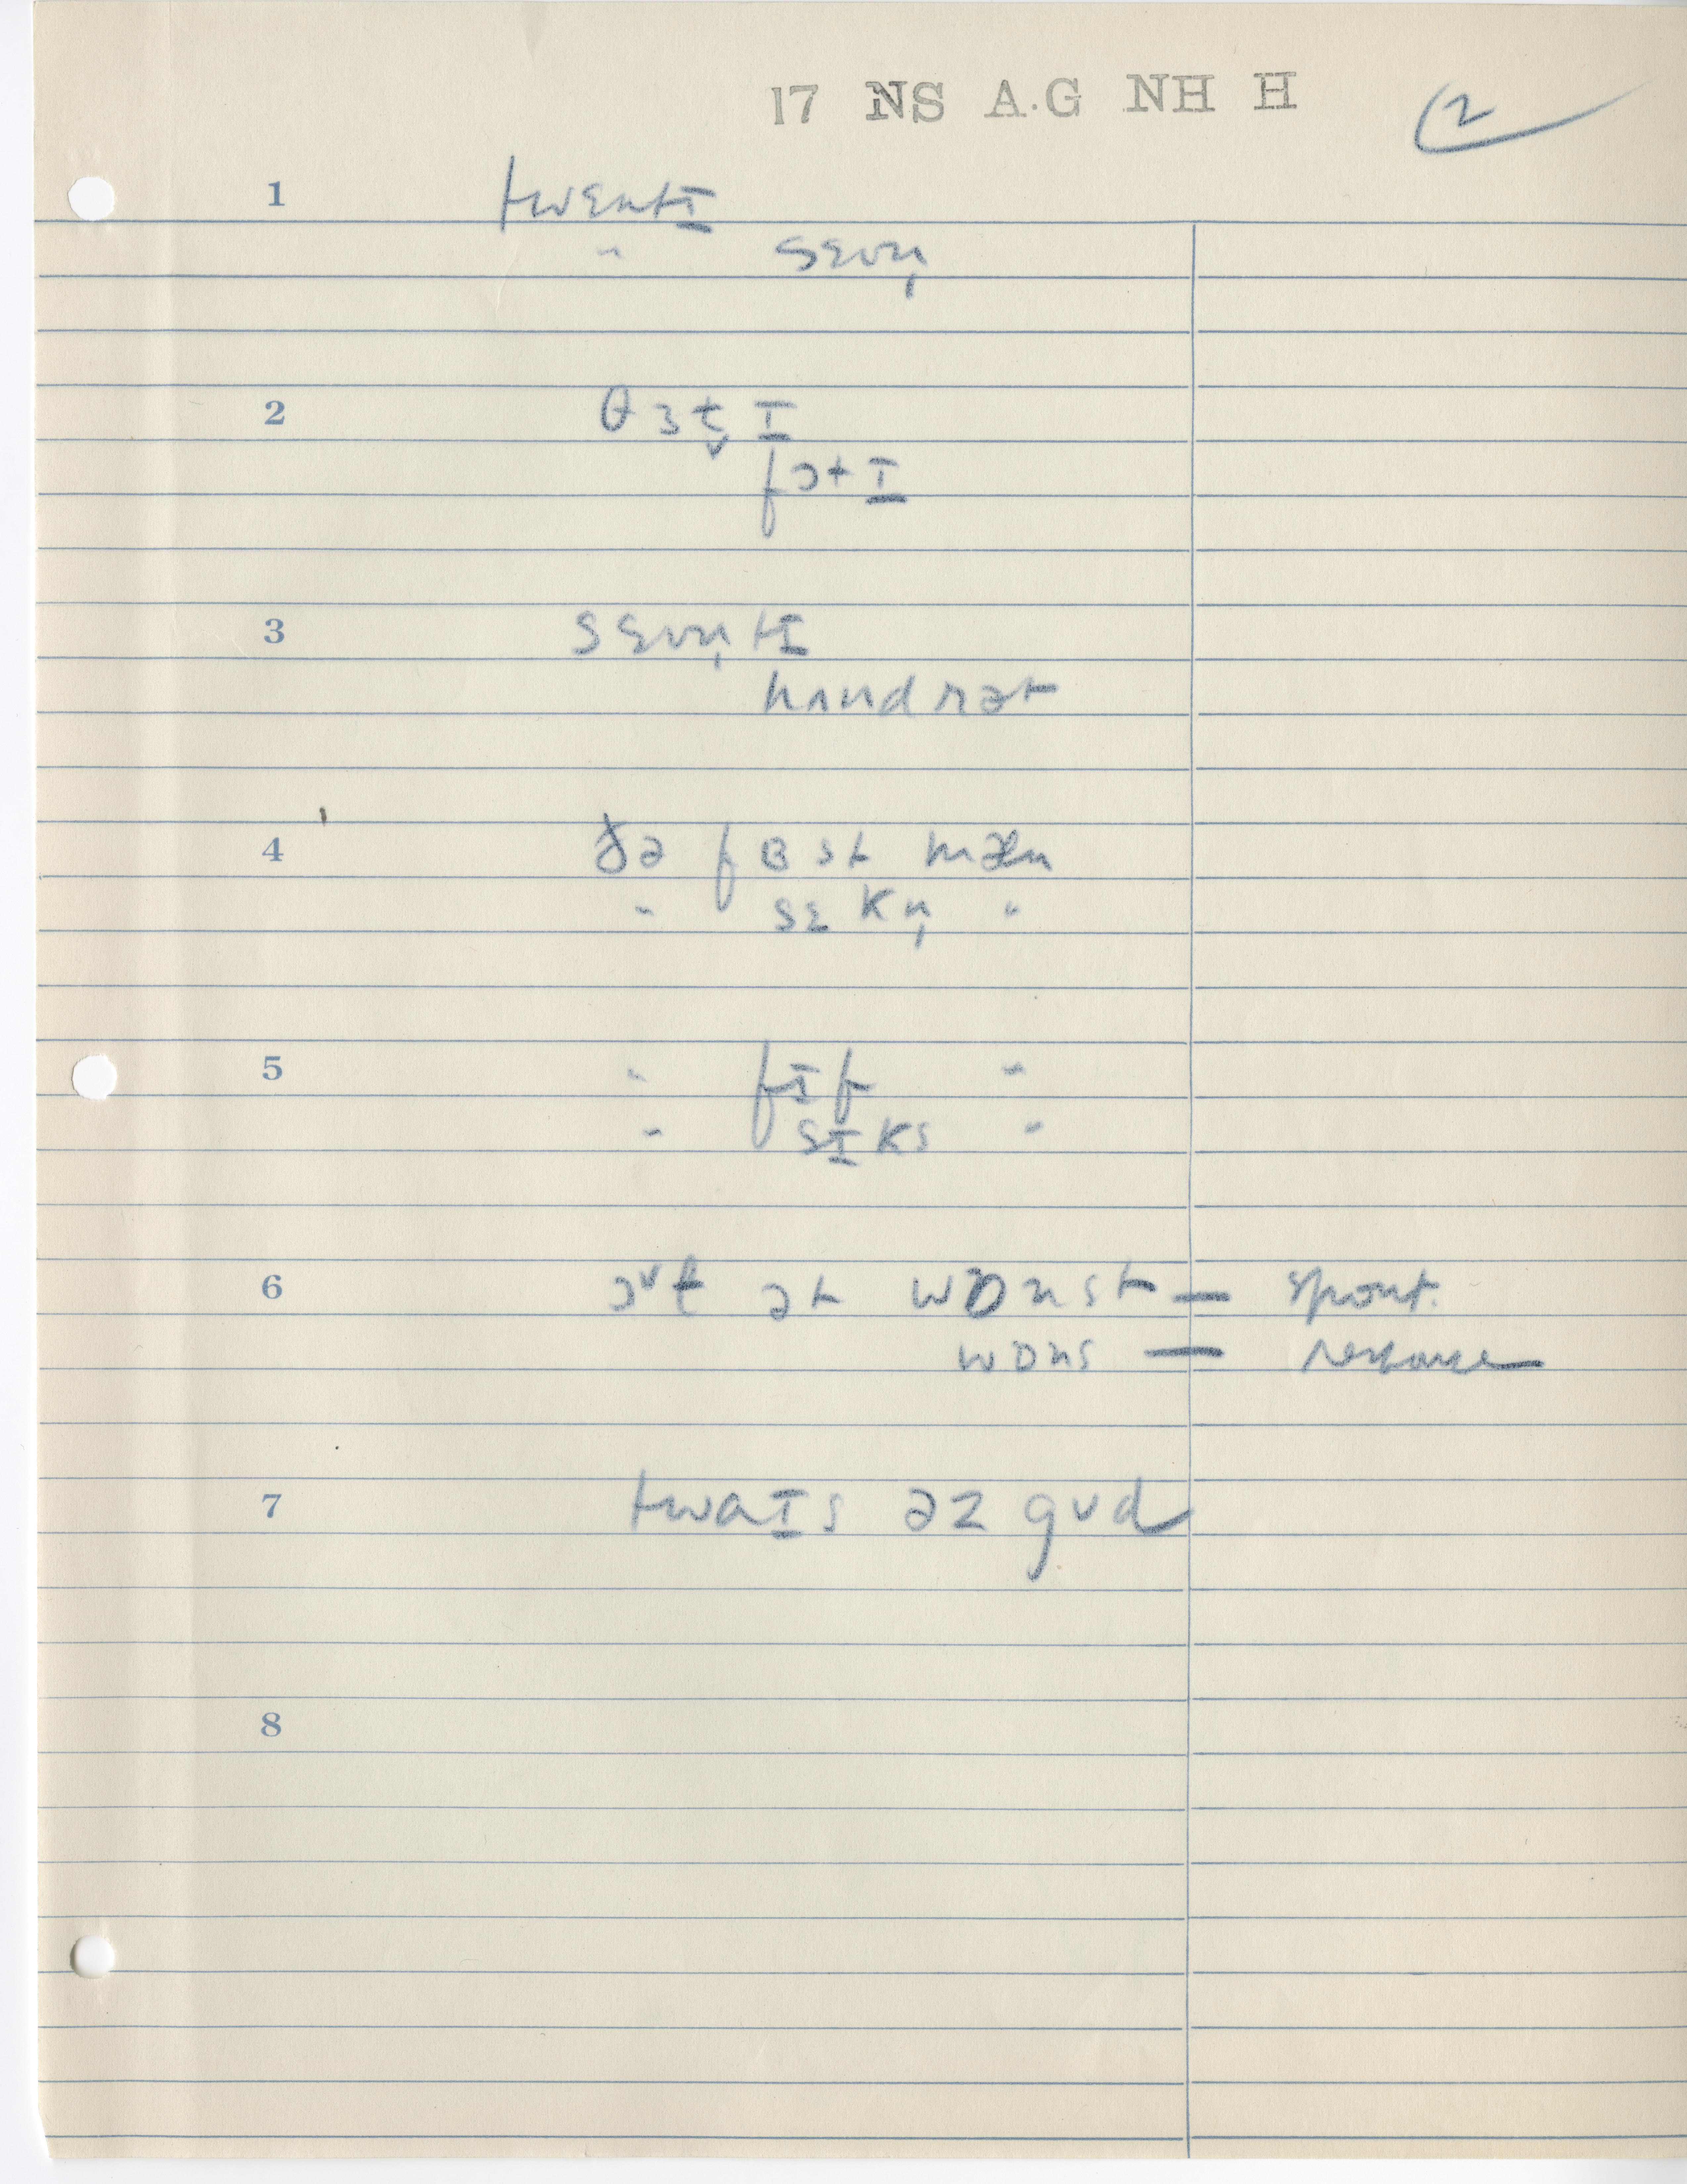 17 NS A·G NH H 2
1 twɛntɪ
" sɛvn̩
2 θɜt̬ɪ
fɔtɪ
3 sɛvn̩tɪ
hʌndrət
4 ðə fɞst mæn
" sɛkn̩ "
5 " fɪf "
" sɪks "
6 ɔᶷt ət wɒnst — spont.
wɒns — response
7 twaɪs əz gʊd
8